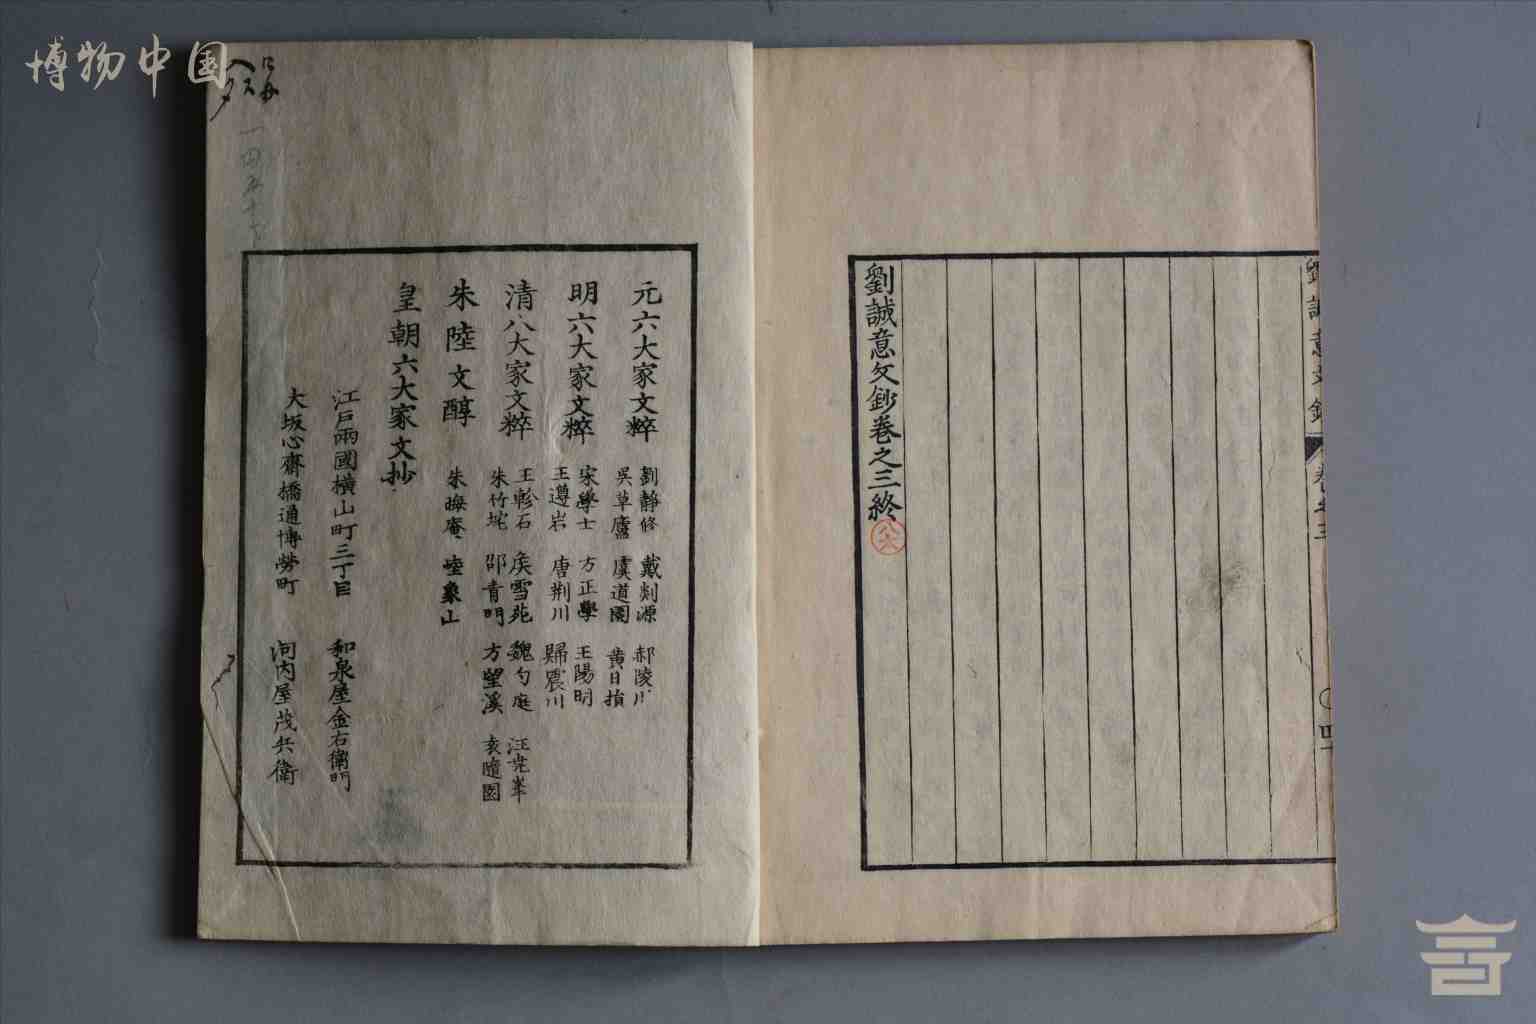 博物中国
劉誠意文鈔卷之三終
元六大家文粹
劉靜修 戴剡源 郝陵川
吳草廬 虞道園 黄日損
明六大家文粹
宋學士 方正學 王陽明
王遵岩 唐荆川 歸震川
清八大家文粹
王軫石 侯雪苑 魏勺庭 汪堯峯
朱竹垞 邵青門 方望溪 袁隨園
朱陸文醇
朱晦庵 陸象山
皇朝六大家文抄
江戸兩國横山町三丁目 和泉屋金右衞門
大坂心齋橋通博勞町 河内屋茂兵衞